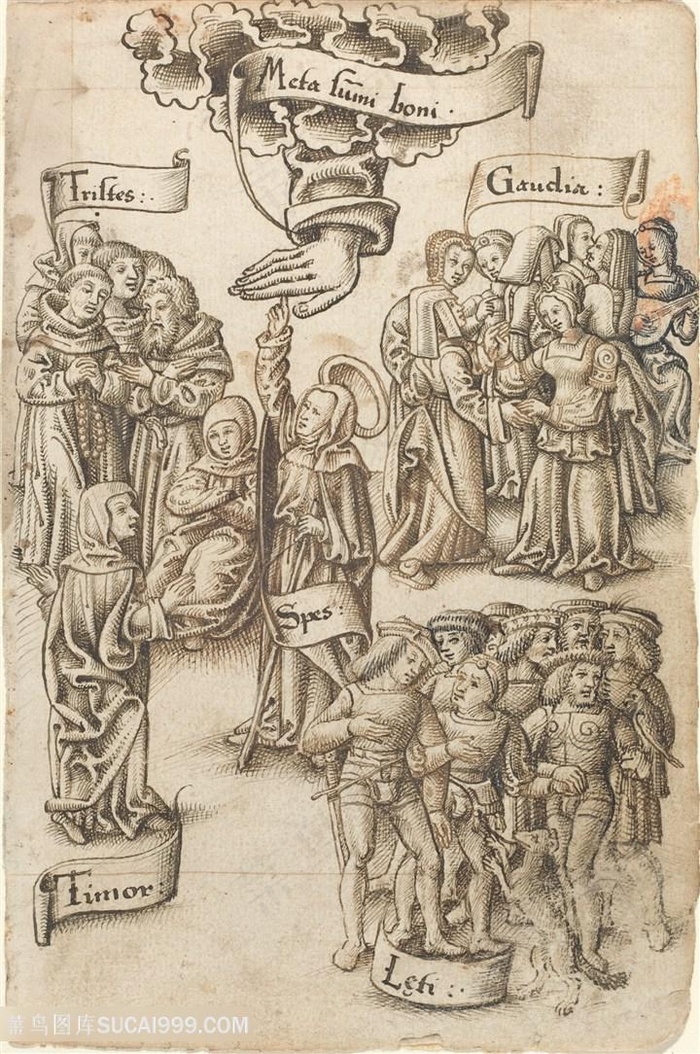 Meta sūmi boni ·
Tristes : ·
Gaudia :
Spes :
Timor :
Lęti : ·
菜鸟图库SUCAI999.COM